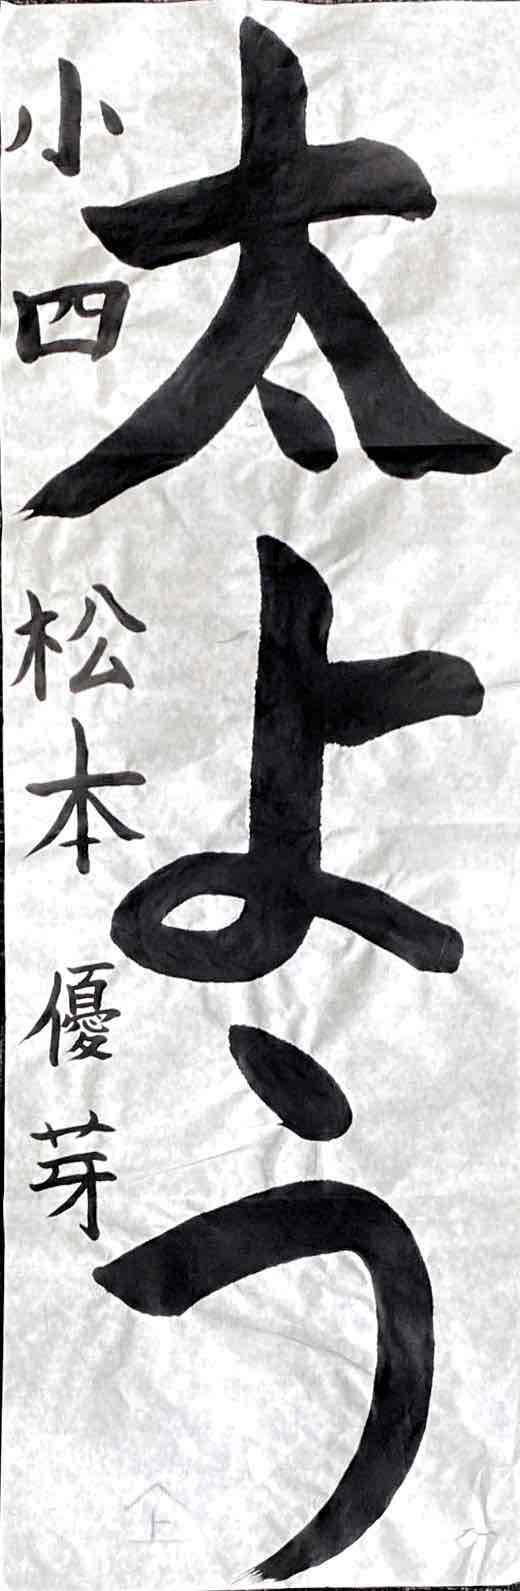 太よう
小四 松本 優芽
上